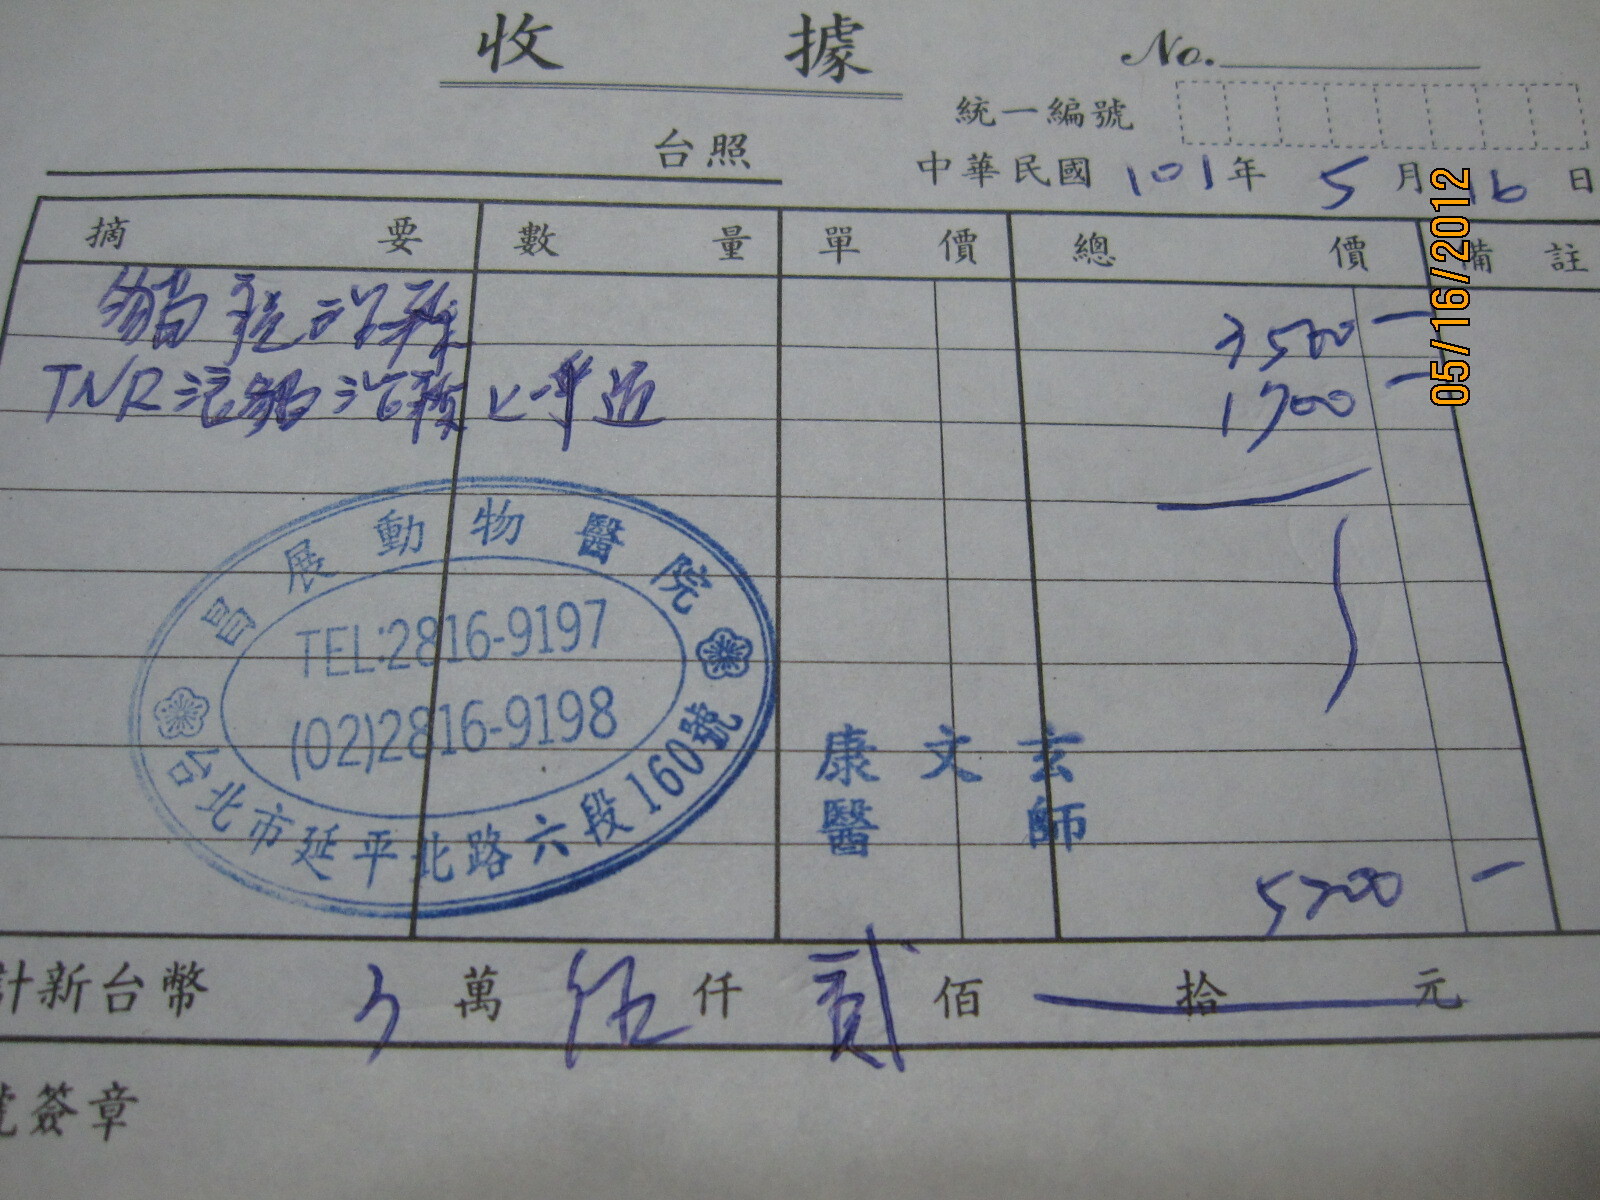 收據
No.
統一編號
台照
中華民國 101 年 5 月 16 日
摘要 數量 單價 總價 備註
貓 治療 3500
TNR 流貓治療 1700
昌展動物醫院
TEL:2816-9197
(02)2816-9198
台北市延平北路六段160號
康文玄
醫師
5200
計新台幣 萬 伍 仟 貳 佰 拾 元
簽章
05/16/2012